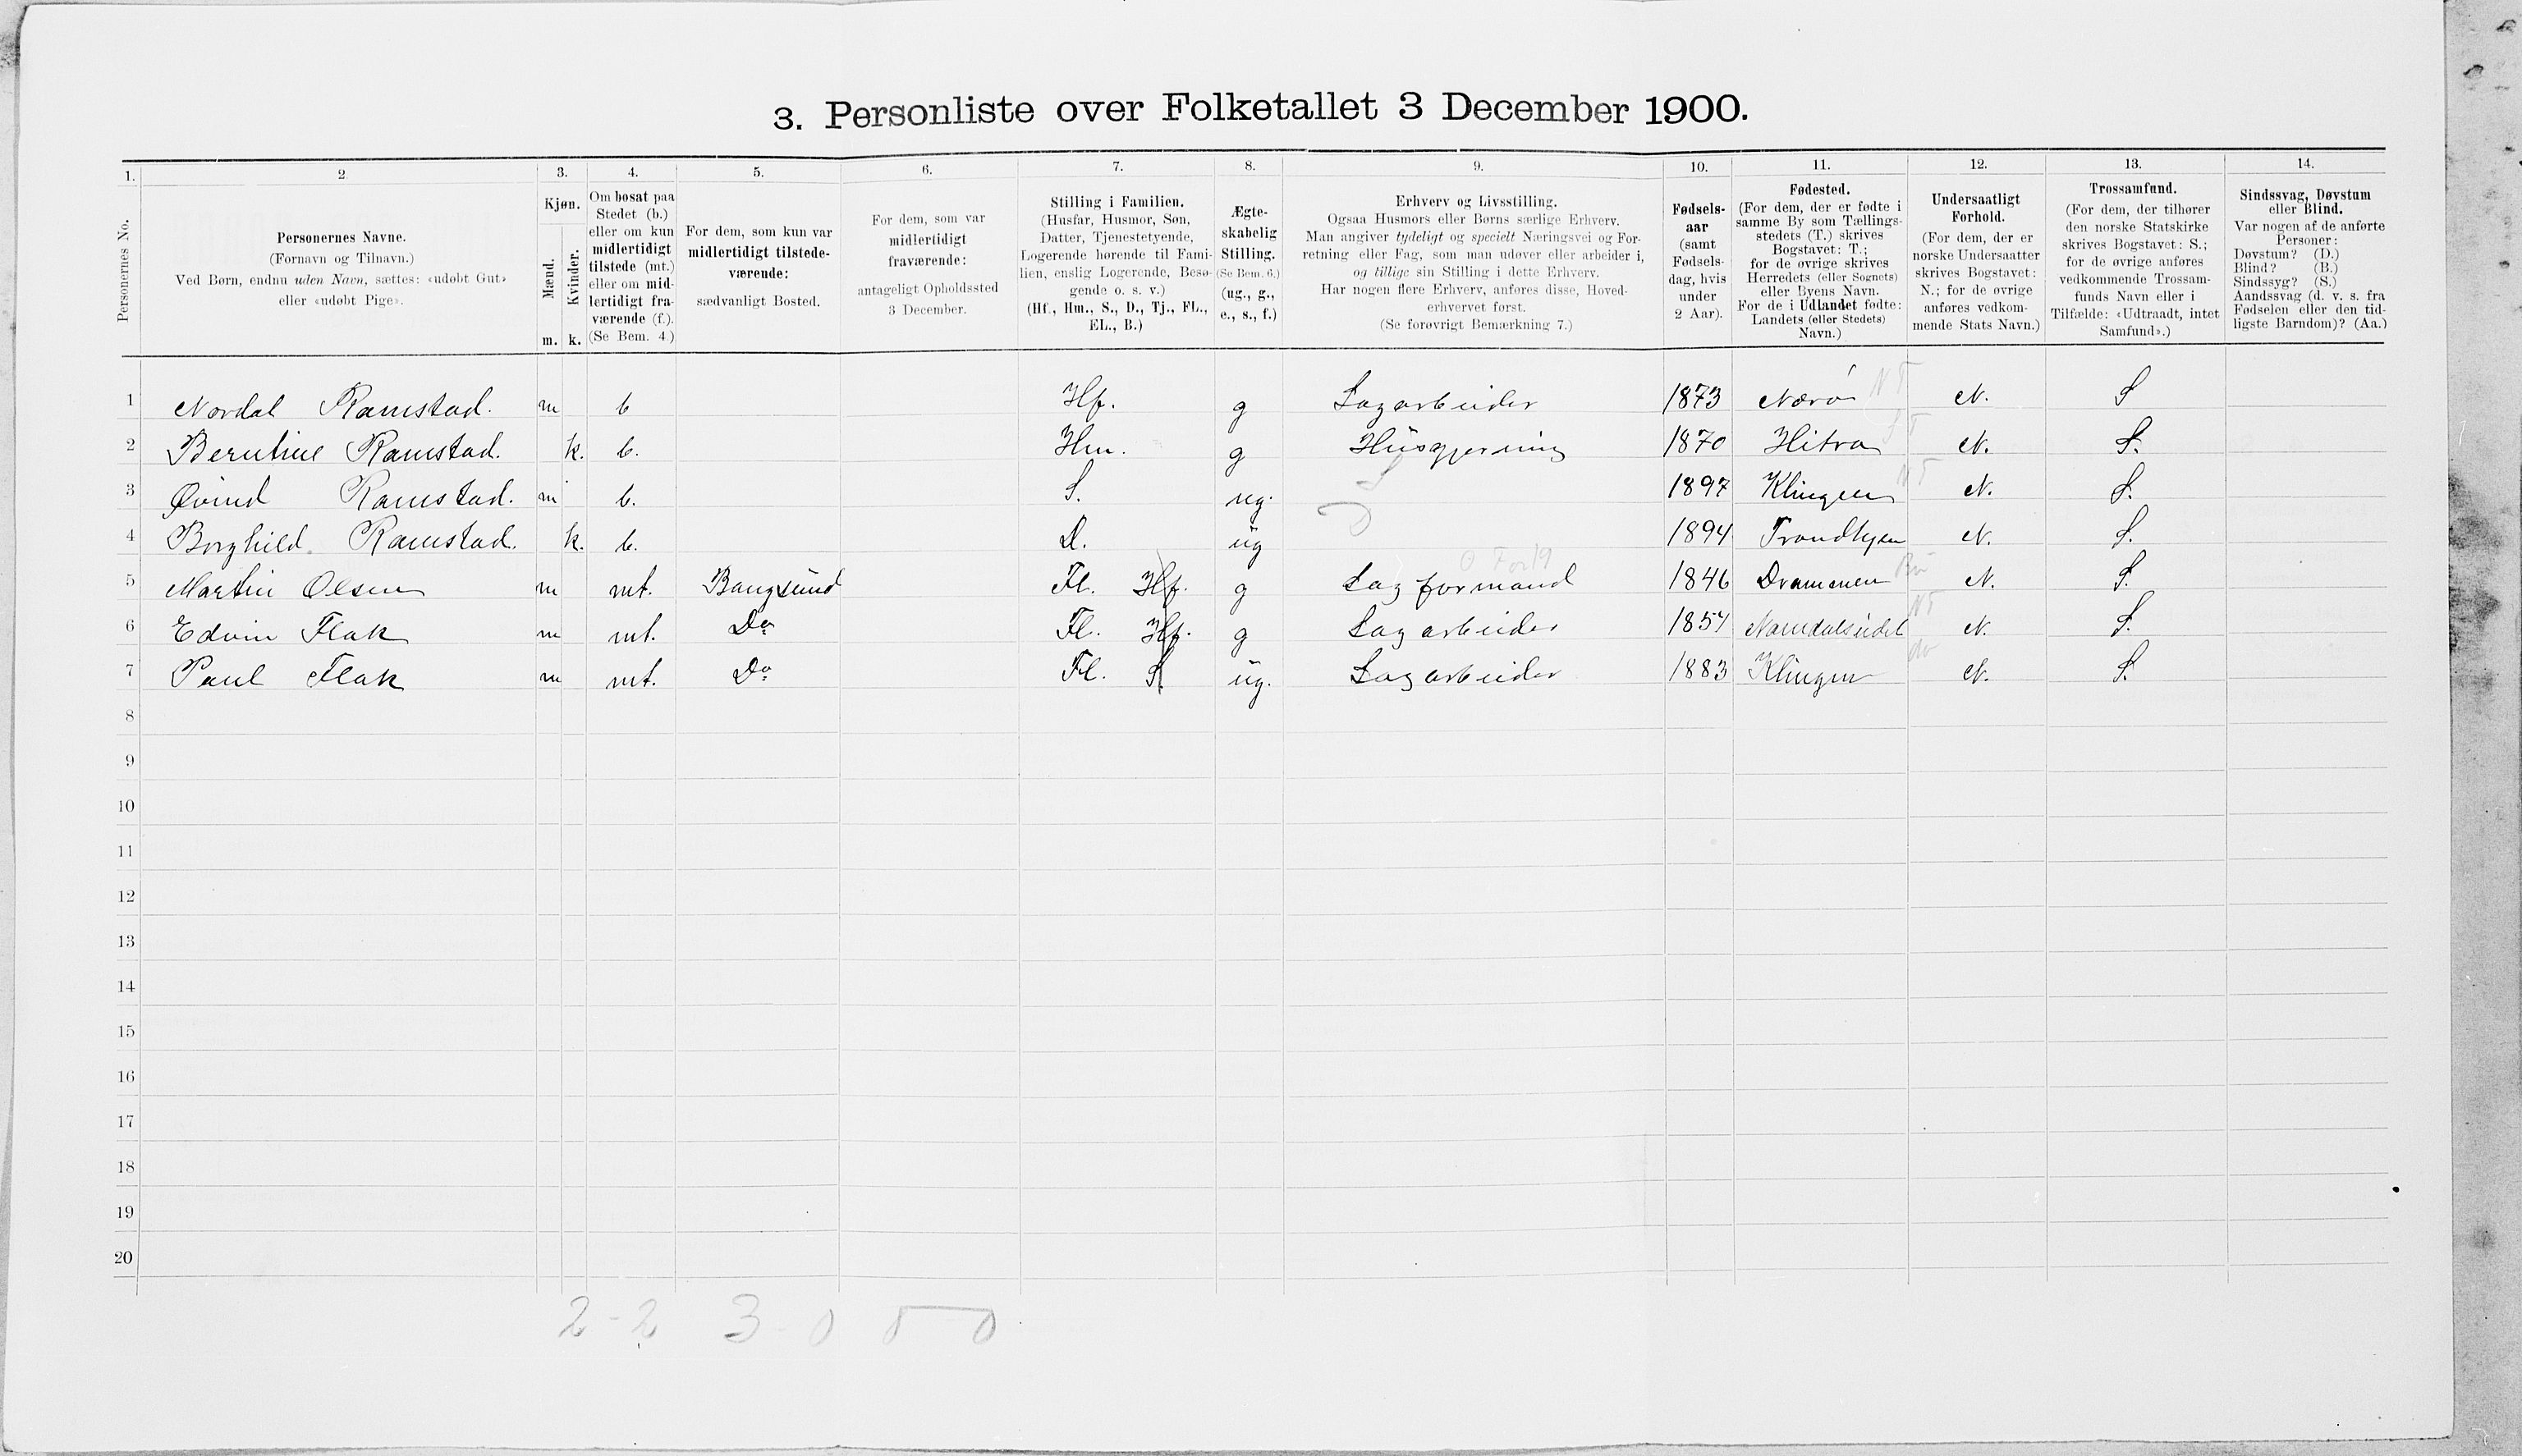 3. Personliste over Folketallet 3 December 1900.
1. 2 3. 4. 5. 6. 7. 8. 9. 10. 11. 12. 13. 14.
Personernes No.
Personernes Navne.
(Fornavn og Tilnavn.)
Ved Børn, endnu uden Navn, sættes: «udøbt Gut»
eller «udøbt Pige».
Kjøn.
Mænd.
Kvinder.
m. k.
Om bosat paa
Stedet (b.)
eller om kun
midlertidigt
tilstede (mt.)
eller om mid-
lertidigt fra-
værende (f.).
(Se Bem. 4.)
For dem, som kun var
midlertidigt tilstede-
værende:
sædvanligt Bosted.
For dem, som var
midlertidigt
fraværende:
antageligt Opholdssted
3 December.
Stilling i Familien.
(Husfar, Husmor, Søn,
Datter, Tjenestetyende,
Logerende hørende til Fami-
lien, enslig Logerende, Besø-
gende o. s. v.)
(Hf., Hm., S., D., Tj., FL.,
EL., B.)
Ægte-
skabelig
Stilling.
(Se Bem. 6.)
(ug., g.,
e., s., f.)
Erhverv og Livsstilling.
Ogsaa Husmors eller Børns særlige Erhverv.
Man angiver tydeligt og specielt Næringsvei og For-
retning eller Fag, som man udøver eller arbeider i,
og tillige sin Stilling i dette Erhverv.
Har nogen flere Erhverv, anføres disse, Hoved-
erhvervet først.
(Se forøvrigt Bemærkning 7.)
Fødsels-
aar
(samt
Fødsels-
dag, hvis
under
2 Aar).
Fødested.
(For dem, der er fødte i
samme By som Tællings-
stedets (T.) skrives
Bogstavet: T.;
for de øvrige skrives
Herredets (eller Sognets)
eller Byens Navn.
For de i Udlandet fødte:
Landets (eller Stedets)
Navn.)
Undersaatligt
Forhold.
(For dem, der er
norske Undersaatter
skrives Bogstavet:
N.; for de øvrige
anføres vedkom-
mende Stats Navn.)
Trossamfund.
(For dem, der tilhører
den norske Statskirke
skrives Bogstavet: S.;
for de øvrige anføres
vedkommende Trossam-
funds Navn eller i
Tilfælde: «Udtraadt, intet
Samfund».)
Sindssvag, Døvstum
eller Blind.
Var nogen af de anførte
Personer:
Døvstum? (D.)
Blind? (B.)
Sindssyg? (S.)
Aandssvag (d. v. s. fra
Fødselen eller den tid-
ligste Barndom)? (Aa.)
1 Nordal Ramstad. m b Hf. g Sagarbeider 1873 Nærø NT N. S
2 Berntine Ramstad. k. b. Hm. g Husgjerning 1870 Hitra ST N. S.
3 Øvind Ramstad. m b. S. ug. S 1897 Klingen NT N. S.
4 Borghild Ramstad. k. b. D. ug D 1894 Trondhjem N. S.
5 Martin Olsen m mt. Bangsund Fl. Hf. g Sagformand 1846 Drammen Bu N. S.
6 Edvin Flak m mt. Do Fl. Hf. g Sagarbeider 1857 Namdalseidet NT N. S.
7 Paul Flak m mt. Do Fl. S. ug. Sagarbeider 1883 Klingen do N. S.
8
9
10
11
12
13
14
15
16
17
18
19
20
2-2 3-0 0